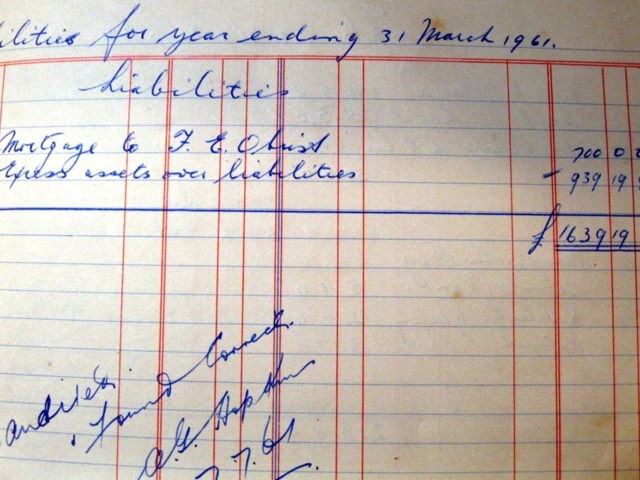 ilities for year ending 31 March 1961.
Liabilities
Mortgage to F. E. Obrist 700 0
Excess assets over liabilities 939 19
£ 1639 19
audited
& found Correct.
A.G. Hopkins
7.7.61